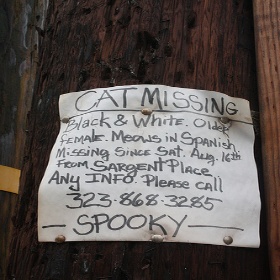 CAT MISSING
Black & White. Older
FEMALE. Meows in Spanish
Missing Since Sat. Aug. 16th
From SARGENT Place
Any INFO. Please call
323-868-3285
— SPOOKY —